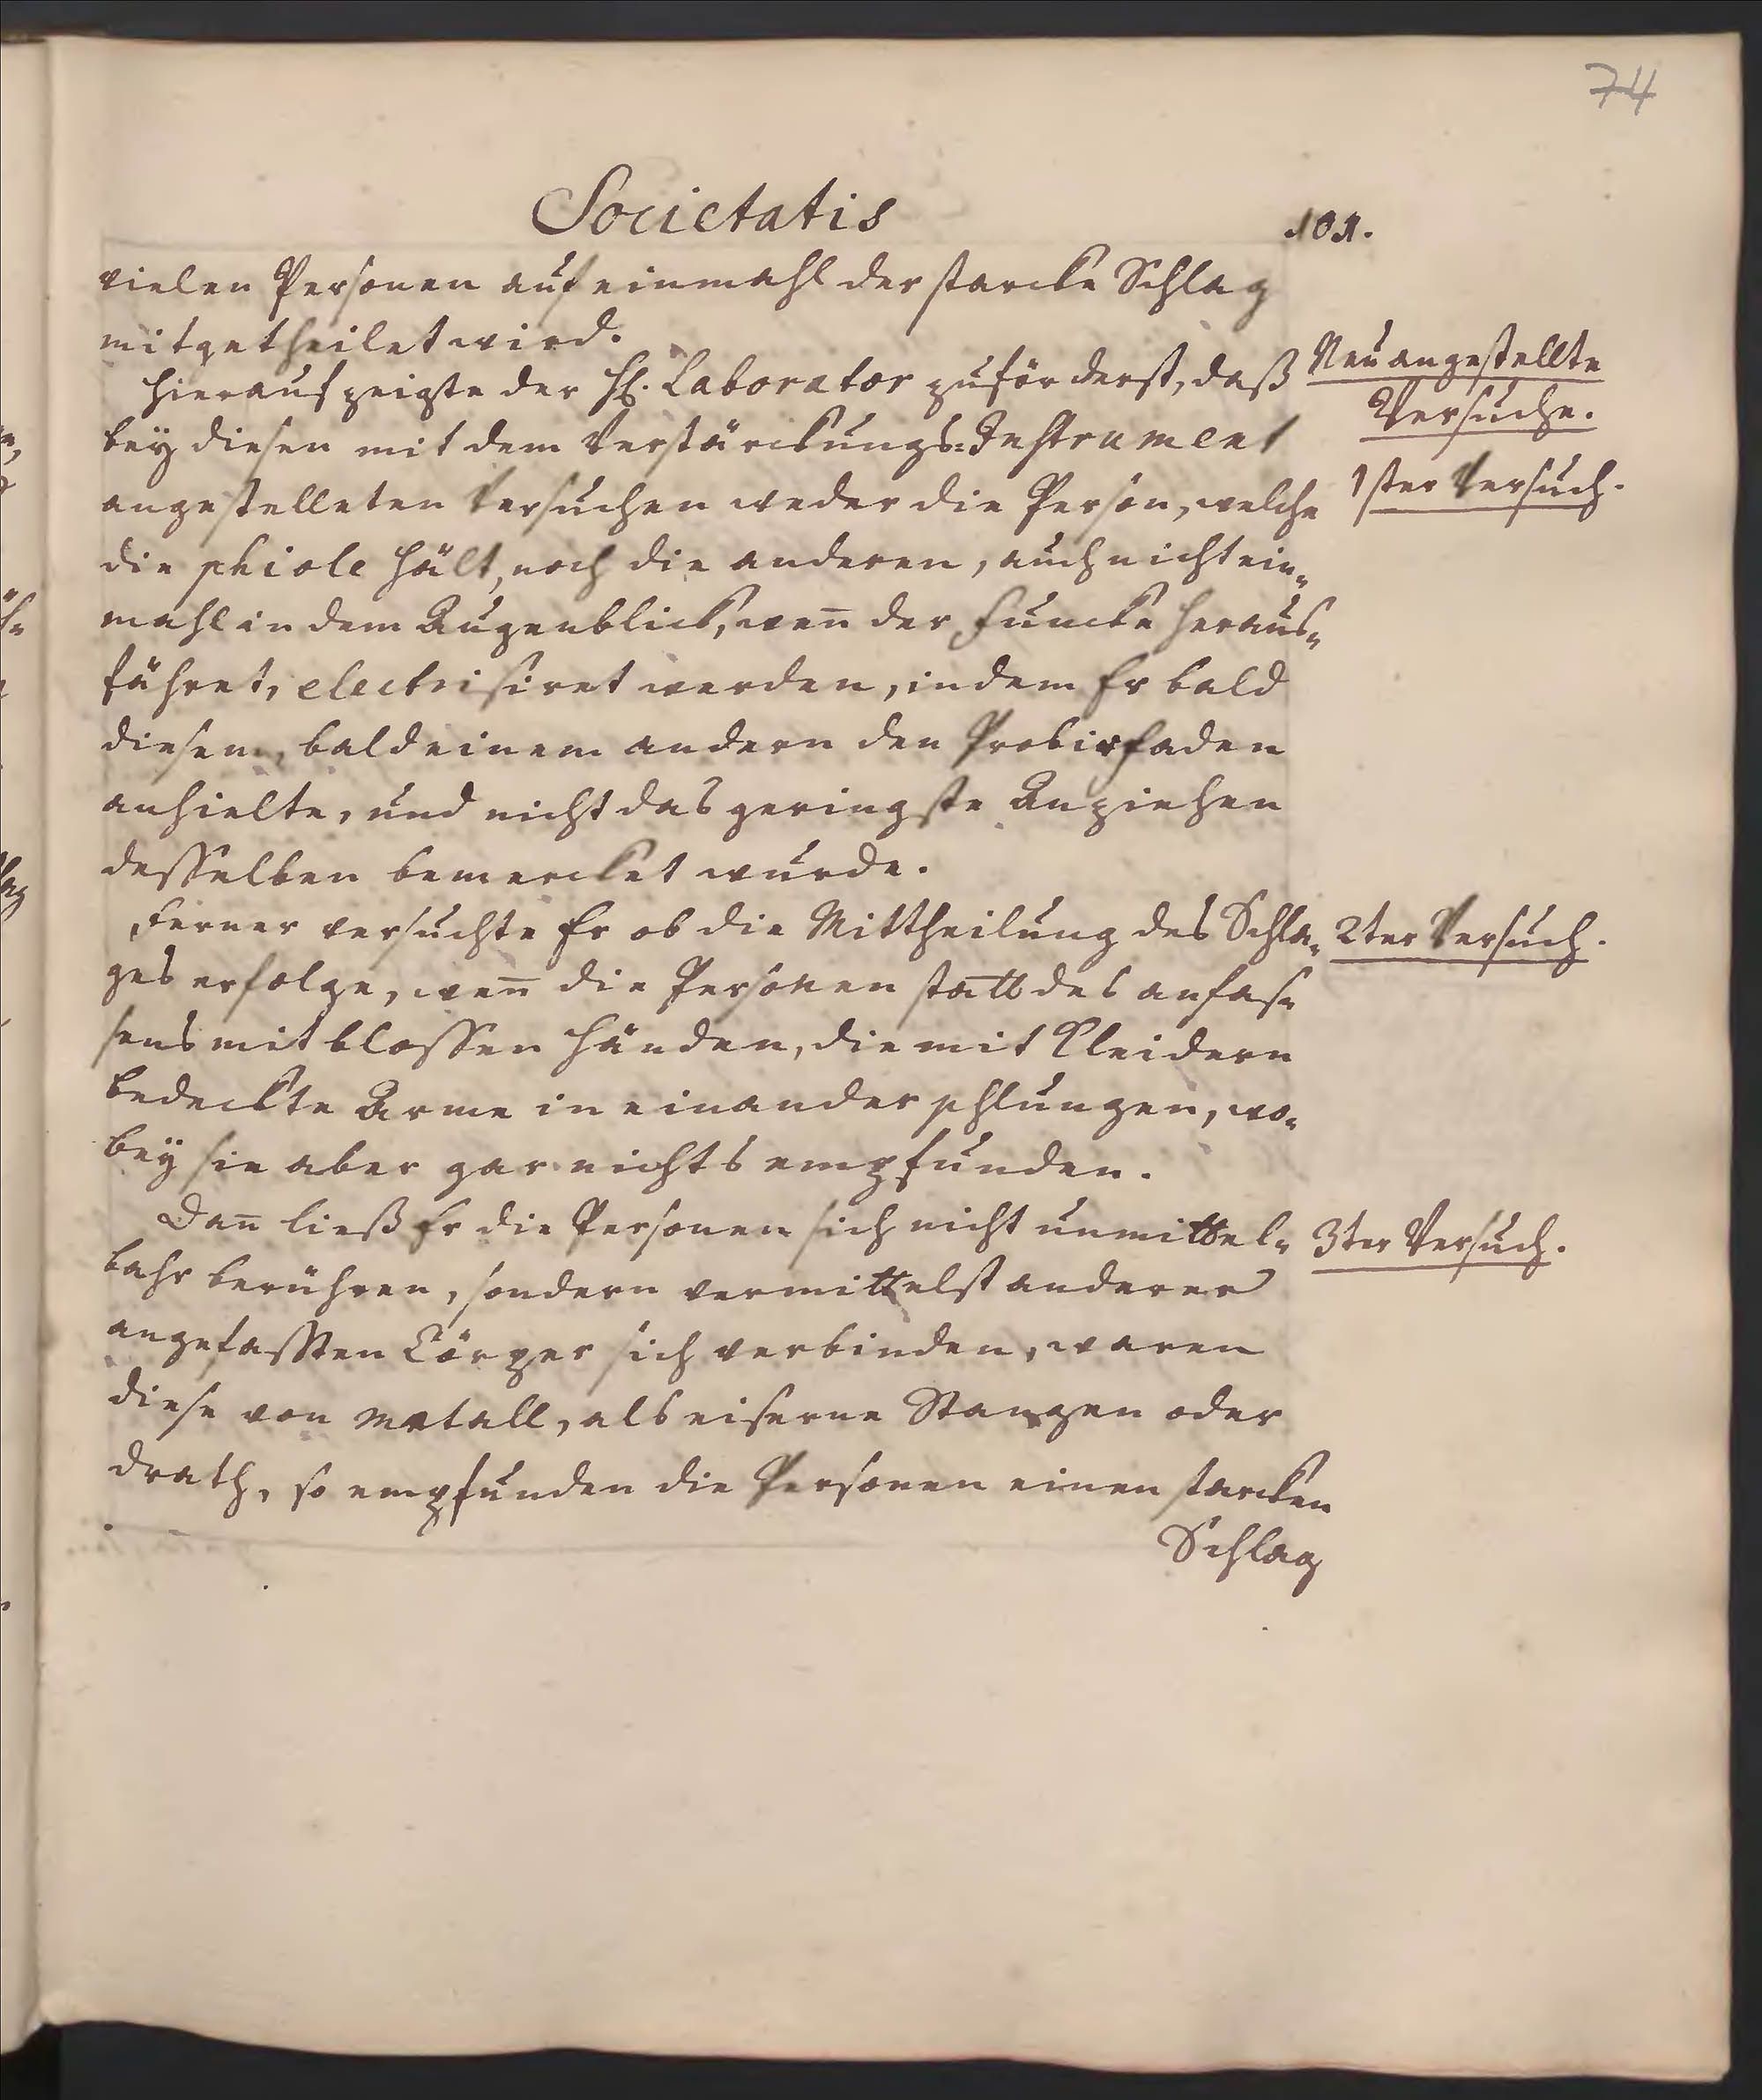 74
Societatis
101.
vielen Personen auf einmahl der starcke Schlag
mitgetheilet wird.
Hierauf zeigte der H. Laborator zuförderst, daß
bey diesen mit dem Verstärckungs=Instrument
angestelleten Versuchen weder die Person, welche
die phiole hält, noch die anderen, auch nicht ein-
mahl in dem Augenblick, wen̄ der Funcke heraus-
fähret, electrisiret werden, indem Er bald
diesem, bald einem andern den Probirfaden
anhielte, und nicht das geringste Anziehen
desselben bemercket wurde.
Ferner versuchte Er ob die Mittheilung des Schla-
ges erfolge, wen̄ die Personen statt des anfas-
sens mit blossen Händen, die mit Kleidern
bedeckte Arme in einander schlungen, wo-
bey sie aber gar nichts empfunden.
Dan̄ ließ Er die Personen sich nicht unmittel-
bahr berühren, sondern vermittelst anderer
angefassten Cörper sich verbinden, waren
diese von Metall, als eiserne Stangen oder
drath, so empfunden die Personen einen starcken
Schlag
Neu angestellte
Versuche.
1ster Versuch.
2ter Versuch.
3ter Versuch.